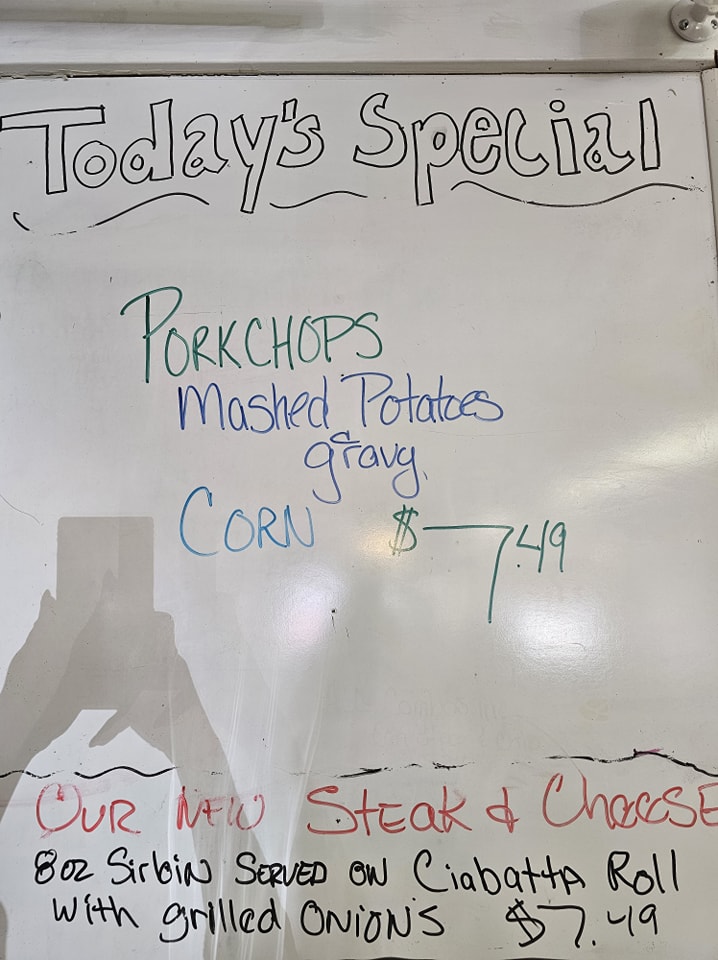 Today's Special
PORKCHOPS
Mashed Potatoes
gravy.
CORN $7.49
OUR NEW STEAK & CHEESE
8oz Sirloin SERVED ON Ciabatta Roll
with grilled ONIONS $7.49